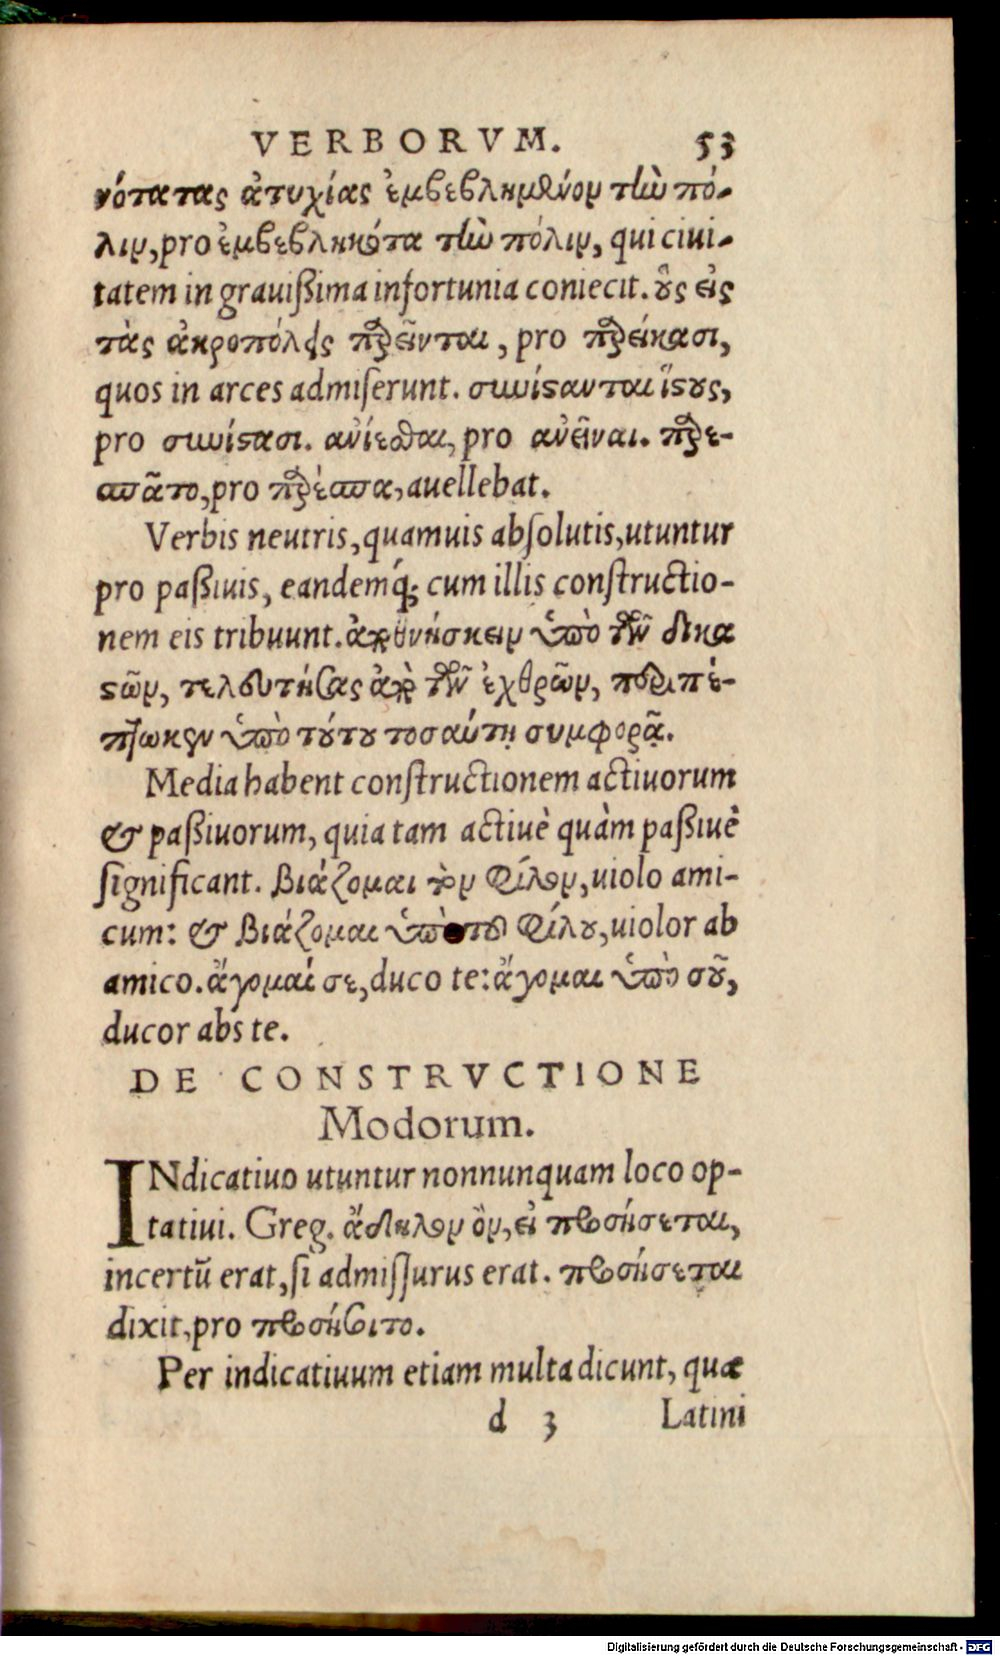 VERBORVM. 53
νότατας ἀτυχίας ἐμβεβλημένον τὴν πό-
λιν, pro ἐμβεβληκότα τὴν πόλιν, qui ciui-
tatem in grauißima infortunia coniecit. οὓς εἰς
τὰς ἀκροπόλεις παρεῖνται, pro παρείκασι,
quos in arces admiserunt. συνίστανται ἵστους,
pro συνίστασι. ἀνίεσθαι, pro ἀνεῖναι. παρε-
σπᾶτο, pro παρέσπα, auellebat.
Verbis neutris, quamuis absolutis, utuntur
pro paßiuis, eandemq́; cum illis constructio-
nem eis tribuunt. ἀποθνήσκειν ὑπὸ τῶν δικα
στῶν, τελευτήσας ἀπὸ τῶν ἐχθρῶν, περιπέ-
πτωκεν ὑπὸ τούτου τοσαύτῃ συμφορᾷ.
Media habent constructionem actiuorum
& paßiuorum, quia tam actiuè quàm paßiuè
significant. βιάζομαι τὸν φίλον, uiolo ami-
cum: & βιάζομαι ὑπὸ τοῦ φίλου, uiolor ab
amico. ἄγομαί σε, duco te: ἄγομαι ὑπὸ σοῦ,
ducor abs te.
DE CONSTRVCTIONE
Modorum.
INdicatiuo utuntur nonnunquam loco op-
tatiui. Greg. ἄδηλον ὂν, εἰ προσήσεται,
incertũ erat, si admissurus erat. προσήσεται
dixit, pro προσήσοιτο.
Per indicatiuum etiam multa dicunt, quæ
d 3 Latini
Digitalisierung gefördert durch die Deutsche Forschungsgemeinschaft - DFG